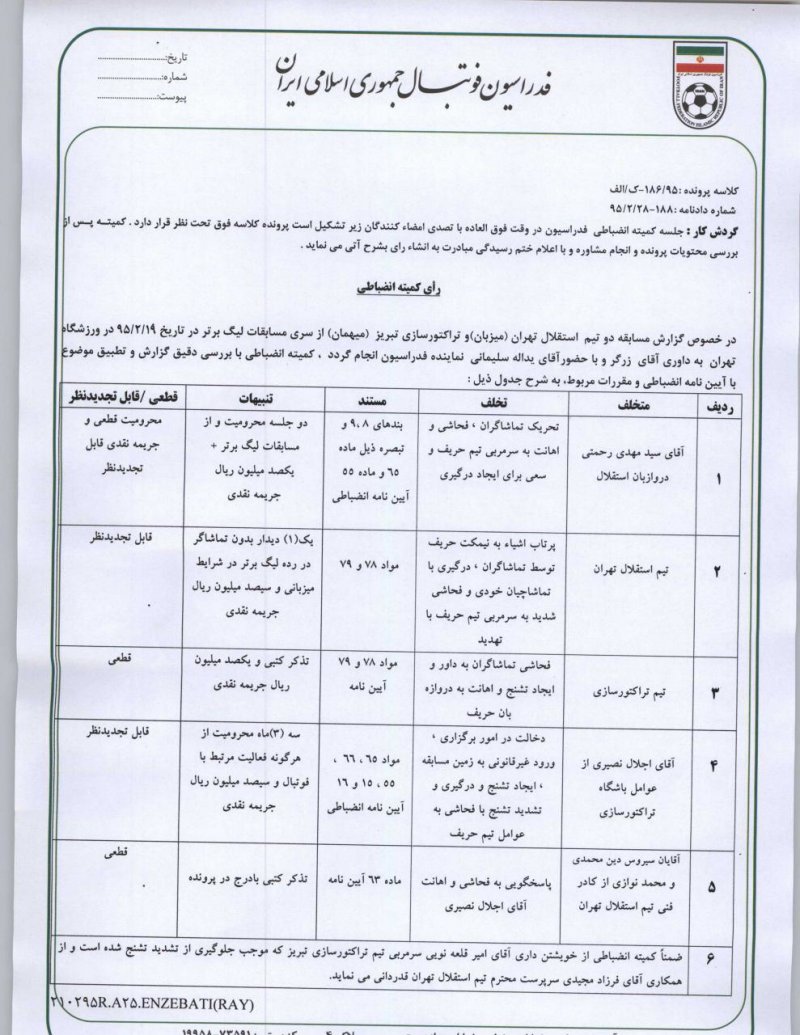 فدراسیون فوتبال جمهوری اسلامی ایران
تاریخ:
شماره:
پیوست:
کلاسه پرونده :۱۸۶/۹۵-ک/الف
شماره دادنامه :۱۸۸-۹۵/۲/۲۸
گردش کار : جلسه کمیته انضباطی فدراسیون در وقت فوق العاده با تصدی امضاء کنندگان زیر تشکیل است پرونده کلاسه فوق تحت نظر قرار دارد . کمیته پس از
بررسی محتویات پرونده و انجام مشاوره و با اعلام ختم رسیدگی مبادرت به انشاء رای بشرح آتی می نماید .
رأی کمیته انضباطی
در خصوص گزارش مسابقه دو تیم استقلال تهران (میزبان)و تراکتورسازی تبریز (میهمان) از سری مسابقات لیگ برتر در تاریخ ۹۵/۲/۱۹ در ورزشگاه
تهران به داوری آقای زرگر و با حضورآقای یداله سلیمانی نماینده فدراسیون انجام گردد ، کمیته انضباطی با بررسی دقیق گزارش و تطبیق موضوع
با آیین نامه انضباطی و مقررات مربوط، به شرح جدول ذیل :
ردیف متخلف تخلف مستند تنبیهات قطعی /قابل تجدیدنظر
۱
آقای سید مهدی رحمتی
دروازبان استقلال
تحریک تماشاگران ، فحاشی و
اهانت به سرمربی تیم حریف و
سعی برای ایجاد درگیری
بندهای ۹،۸ و
تبصره ذیل ماده
۶۵ و ماده ۵۵
آیین نامه انضباطی
دو جلسه محرومیت و از
مسابقات لیگ برتر +
یکصد میلیون ریال
جریمه نقدی
محرومیت قطعی و
جریمه نقدی قابل
تجدیدنظر
۲
تیم استقلال تهران
پرتاب اشیاء به نیمکت حریف
توسط تماشاگران ، درگیری با
تماشاچیان خودی و فحاشی
شدید به سرمربی تیم حریف با
تهدید
مواد ۷۸ و ۷۹
یک(۱) دیدار بدون تماشاگر
در رده لیگ برتر در شرایط
میزبانی و سیصد میلیون ریال
جریمه نقدی
قابل تجدیدنظر
۳
تیم تراکتورسازی
فحاشی تماشاگران به داور و
ایجاد تشنج و اهانت به دروازه
بان حریف
مواد ۷۸ و ۷۹
آیین نامه
تذکر کتبی و یکصد میلیون
ریال جریمه نقدی
قطعی
۴
آقای اجلال نصیری از
عوامل باشگاه
تراکتورسازی
دخالت در امور برگزاری ،
ورود غیرقانونی به زمین مسابقه
، ایجاد تشنج و درگیری و
تشدید تشنج با فحاشی به
عوامل تیم حریف
مواد ۶۵، ۶۶ ،
۵۵ ، ۱۵ و ۱۶
آیین نامه انضباطی
سه (۳)ماه محرومیت از
هرگونه فعالیت مرتبط با
فوتبال و سیصد میلیون ریال
جریمه نقدی
قابل تجدیدنظر
۵
آقایان سیروس دین محمدی
و محمد نوازی از کادر
فنی تیم استقلال تهران
پاسخگویی به فحاشی و اهانت
آقای اجلال نصیری
ماده ۶۳ آیین نامه
تذکر کتبی بادرج در پرونده
قطعی
۶
ضمناً کمیته انضباطی از خویشتن داری آقای امیر قلعه نویی سرمربی تیم تراکتورسازی تبریز که موجب جلوگیری از تشدید تشنج شده است و از
همکاری آقای فرزاد مجیدی سرپرست محترم تیم استقلال تهران قدردانی می نماید.
۲۱۰۲۹۵R.A۲۵.ENZEBATI(RAY)